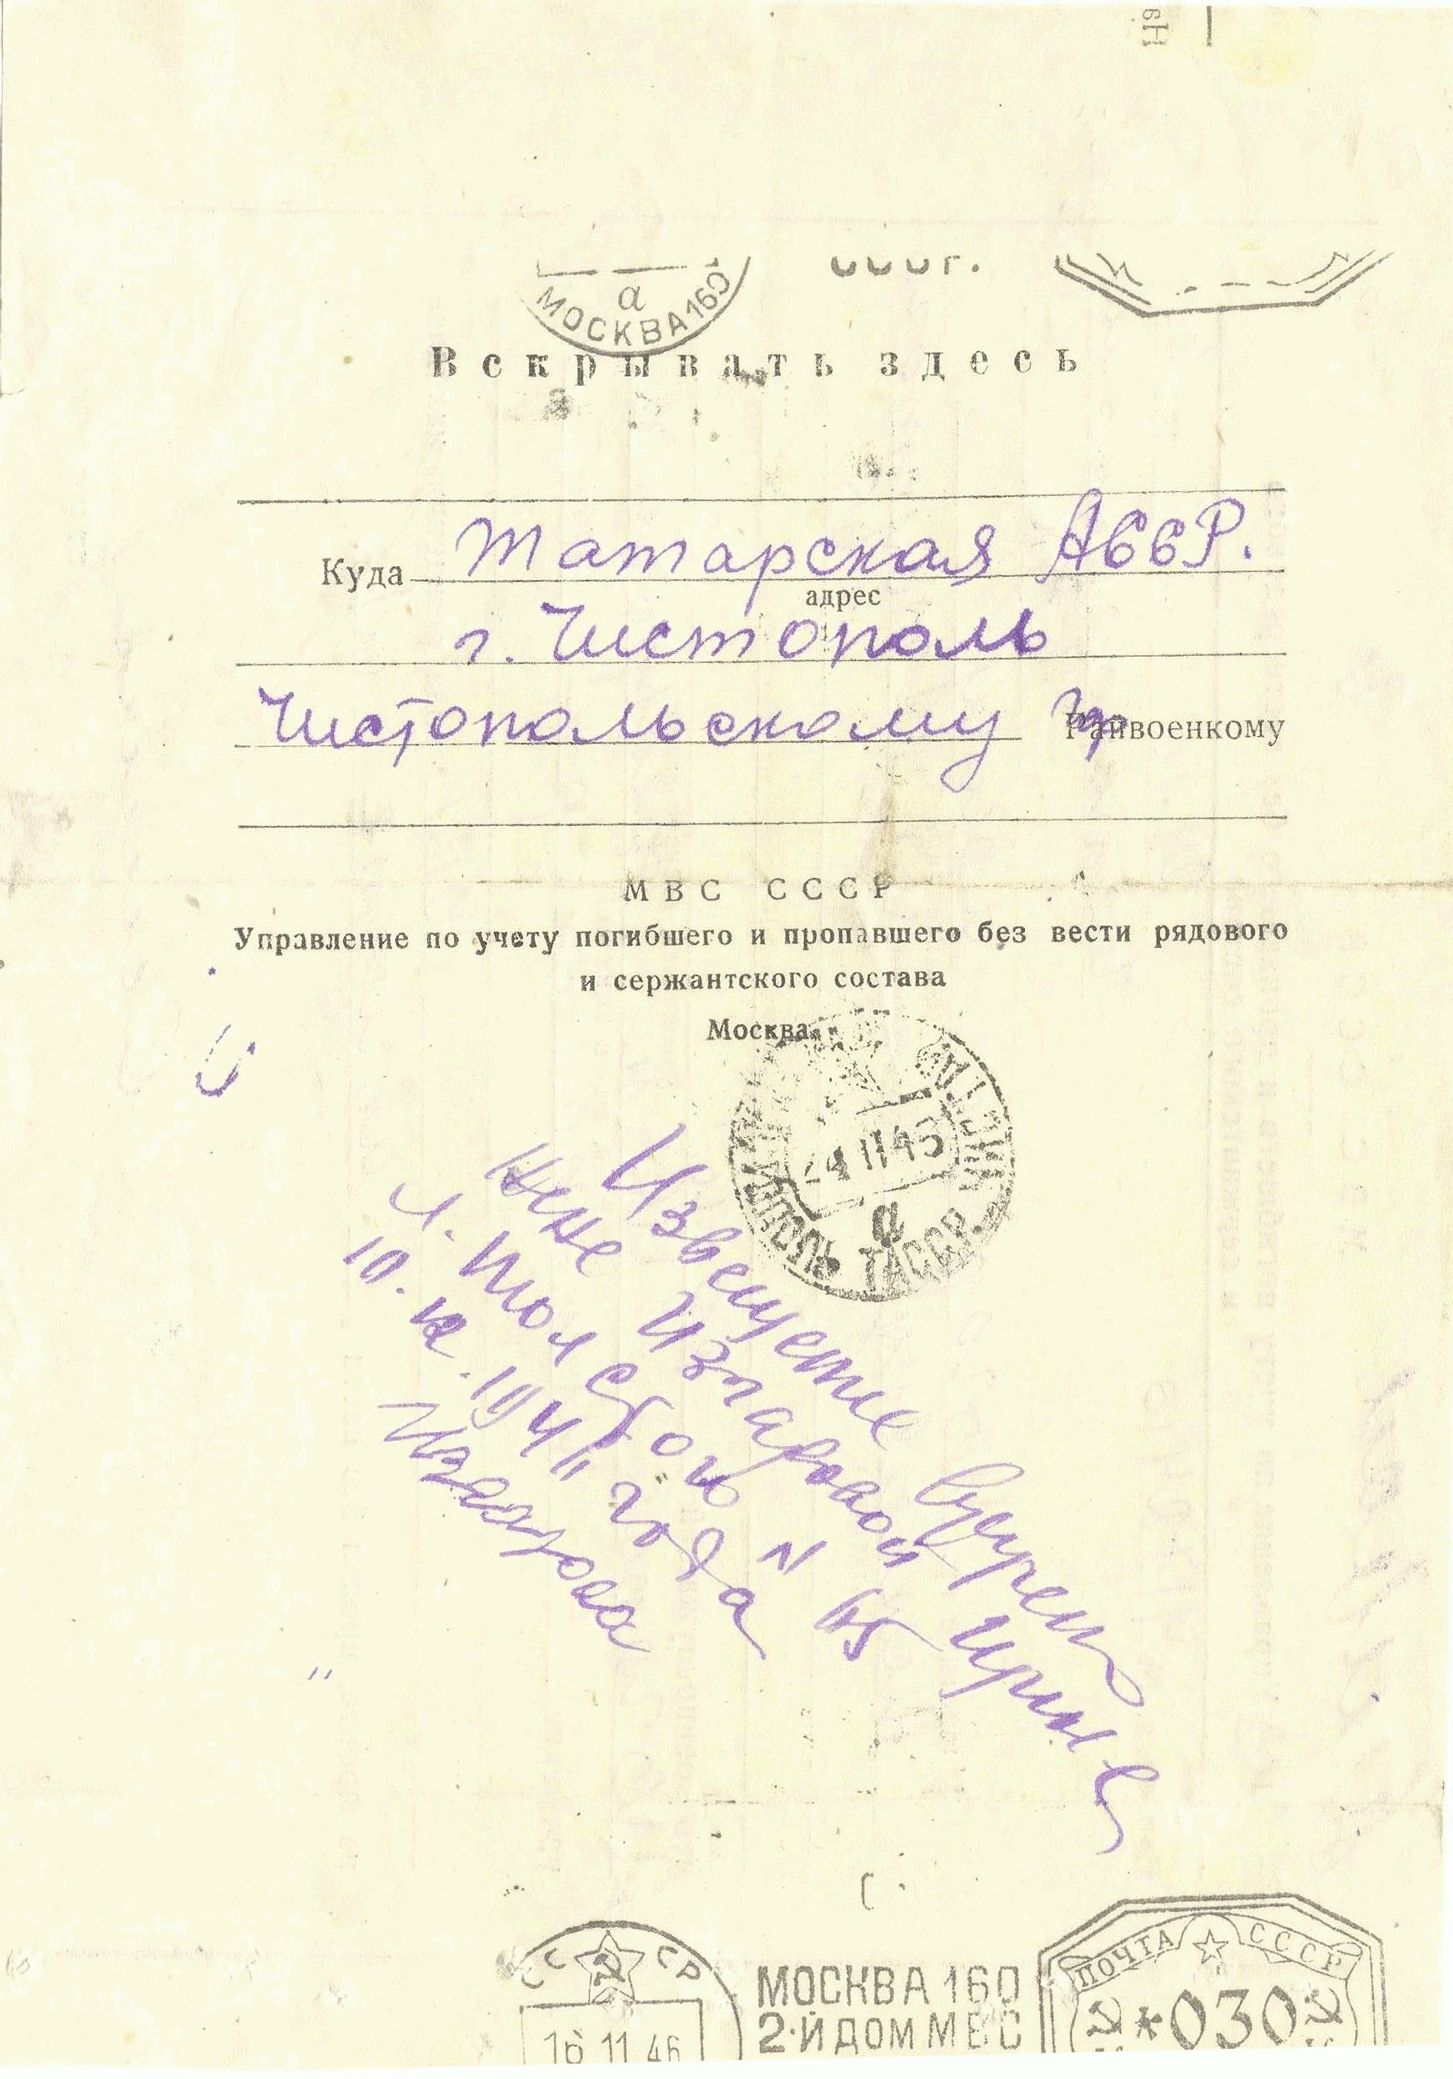 МОСКВА 160
а
Вскрывать здесь
Куда Татарская АССР.
адрес
г. Чистополь
Чистопольскому Райвоенкому
МВС СССР
Управление по учету погибшего и пропавшего без вести рядового
и сержантского состава
Москва
24 11 45
а
ТАССР
Известие вручено
Изгаровой Ирине
Л. Толстого N
года
Изгарова
СССР
16 11 46
МОСКВА 160
2-Й ДОМ МВС
ПОЧТА СССР
*030